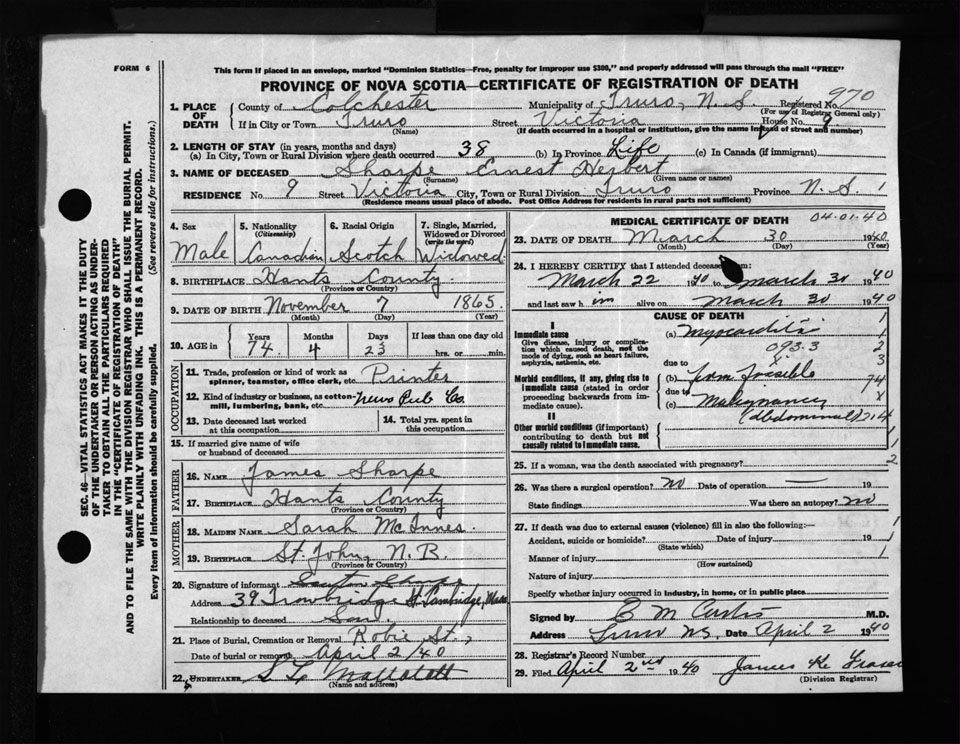 FORM 6
This form if placed in an envelope, marked "Dominion Statistics—Free, penalty for improper use $300," and properly addressed will pass through the mail "FREE"
PROVINCE OF NOVA SCOTIA—CERTIFICATE OF REGISTRATION OF DEATH
1. PLACE OF DEATH County of Colchester Municipality of Truro, N.S. Registered No. 970
(For use of Registrar General only)
If in City or Town Truro Street Victoria House No. 9
(Name) (If death occurred in a hospital or institution, give the name instead of street and number)
2. LENGTH OF STAY (in years, months and days)
(a) In City, Town or Rural Division where death occurred 38 (b) In Province Life (c) In Canada (if immigrant)
3. NAME OF DECEASED Sharpe Ernest Herbert
(Surname) (Given name or names)
RESIDENCE No. 9 Street Victoria City, Town or Rural Division Truro Province N.S. 1
(Residence means usual place of abode. Post Office Address for residents in rural parts not sufficient)
4. Sex 5. Nationality (Citizenship) 6. Racial Origin 7. Single, Married, Widowed or Divorced (write the word)
Male Canadian Scotch Widowed
8. BIRTHPLACE Hants County
(Province or Country)
9. DATE OF BIRTH November 7 1865
(Month) (Day) (Year)
10. AGE in Years Months Days If less than one day old
74 4 23 hrs. or min.
OCCUPATION
11. Trade, profession or kind of work as spinner, teamster, office clerk, etc. Printer
12. Kind of industry or business, as cotton-mill, lumbering, bank, etc. News Pub Co.
13. Date deceased last worked at this occupation 14. Total yrs. spent in this occupation
15. If married give name of wife or husband of deceased
FATHER
16. NAME James Sharpe
17. BIRTHPLACE Hants County
(Province or Country)
MOTHER
18. MAIDEN NAME Sarah McInnes
19. BIRTHPLACE St. John, N.B.
(Province or Country)
20. Signature of informant
Address 39 Trowbridge St. Cambridge, Mass
Relationship to deceased Son
21. Place of Burial, Cremation or Removal Robie St.,
Date of burial or removal April 2/40
22. UNDERTAKER
(Name and address)
MEDICAL CERTIFICATE OF DEATH 04-01-40
23. DATE OF DEATH March 30 1940
(Month) (Day) (Year)
24. I HEREBY CERTIFY that I attended deceased from:
March 22 1940 to March 30 1940
and last saw him alive on March 30 1940
CAUSE OF DEATH
I
Immediate cause (a) Myocarditis
Give disease, injury or complication which caused death, not the mode of dying, such as heart failure, asphyxia, asthenia, etc.
093.3
due to
Morbid conditions, if any, giving rise to immediate cause (stated in order proceeding backwards from immediate cause).
(b) from possible
due to
(c) Malignancy
(Abdominal)
II
Other morbid conditions (if important) contributing to death but not causally related to immediate cause.
25. If a woman, was the death associated with pregnancy?
26. Was there a surgical operation? no Date of operation — 19
State findings Was there an autopsy? no
27. If death was due to external causes (violence) fill in also the following:—
Accident, suicide or homicide? Date of injury 19
(State which)
Manner of injury
(How sustained)
Nature of injury
Specify whether injury occurred in industry, in home, or in public place
Signed by B M Curtis M.D.
Address Truro N.S. Date April 2 1940
28. Registrar's Record Number
29. Filed April 2nd 1940 James K Fraser
(Division Registrar)
SEC. 46—VITAL STATISTICS ACT MAKES IT THE DUTY
OF THE UNDERTAKER OR PERSON ACTING AS UNDERTAKER TO OBTAIN ALL THE PARTICULARS REQUIRED
IN THE "CERTIFICATE OF REGISTRATION OF DEATH"
AND TO FILE THE SAME WITH THE DIVISION REGISTRAR WHO SHALL ISSUE THE BURIAL PERMIT.
WRITE PLAINLY WITH UNFADING INK. THIS IS A PERMANENT RECORD.
Every item of information should be carefully supplied. (See reverse side for instructions.)